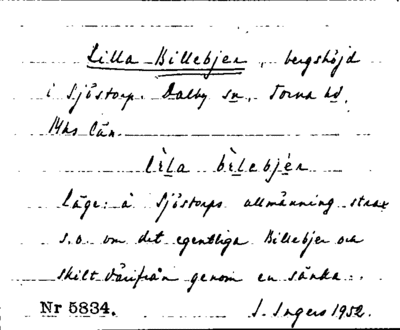 Lilla Billebjer, bergshöjd
i Sjöstorp. Dalby sn, Torna hd,
Mhs län.
lìla bìlebjér
Läge: å Sjöstorps allmänning strax
s.o. om det egentliga Billebjer och
skilt därifrån genom en sänka.
Nr 5834. I. Ingers 1952.